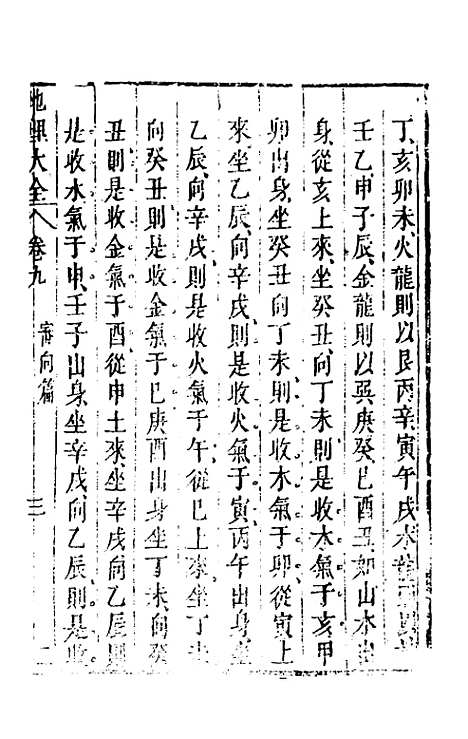 丁亥卯未火龍則以艮丙辛寅午戌水龍
壬乙申子辰金龍則以巽庚癸巳酉丑如山水出
身從亥上來坐癸丑向丁未則是收木氣于亥甲
卯出身坐癸丑向丁未則是收木氣于卯從寅上
來坐乙辰向辛戌則是收火氣于寅丙午出身坐
乙辰向辛戌則是收火氣于午從巳上來坐丁未
向癸丑則是收金氣于巳庚酉出身坐丁未向癸
丑則是收金氣于酉從申土來坐辛戌向乙辰則
是收水氣于申壬子出身坐辛戌向乙辰則是收
地理大全 卷九 審向篇 三